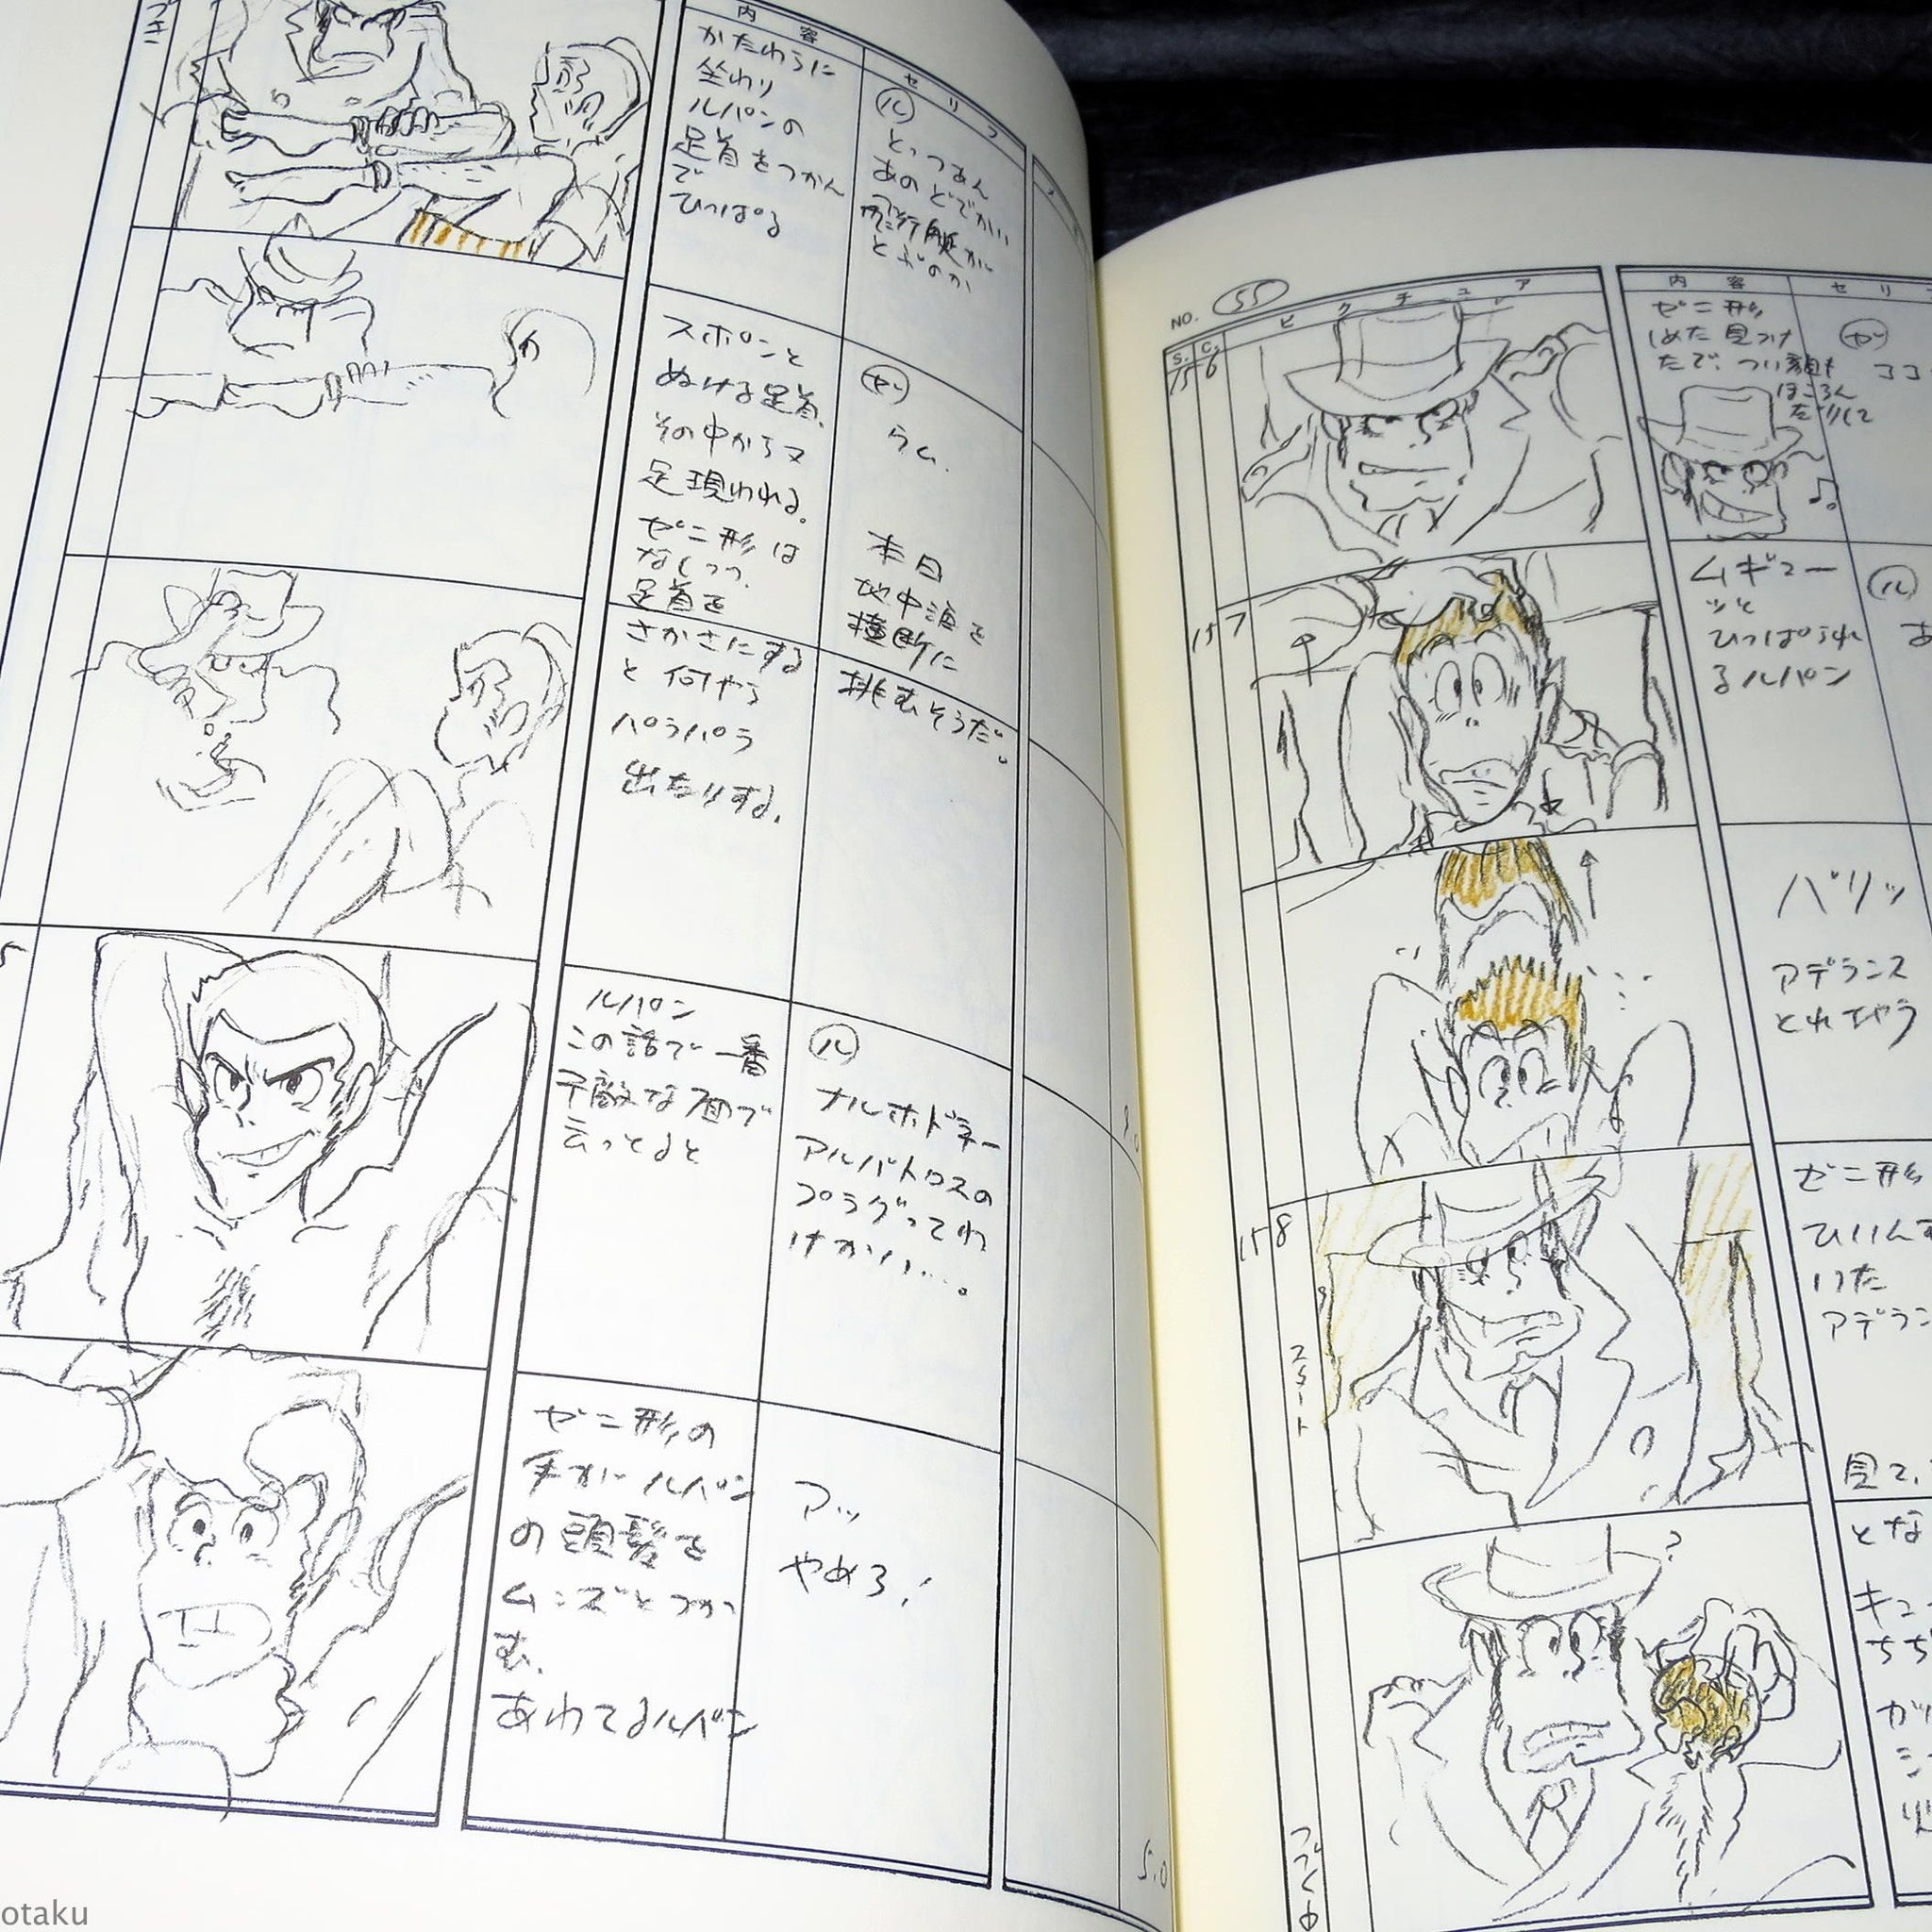 つづき
内容
セリフ
かたわらに
坐わり
ルパンの
足首をつかん
で
ひっぱる
ル
とっつあん
あのどでかい
飛行艇が
とぶのか
スポンと
ぬける足首、
その中から又
足現われる。
ゼニ形は
足首を
さかさにする
と何やら
パラパラ
出たりする。
ゼ
うむ.
本日
地中海を
横断に
挑むそうだ。
ルパン
この話で一番
不敵な面で
云っとると
ル
ナルホドネー
アルバトロスの
プラグってわ
けかい…。
9.0
ゼニ形の
手がルパン
の頭髪を
ムンズとつか
む.
あわてるルパン
アッ
やめろ!
5.0
NO. 55
S. C. ピクチュア
内容
セリフ
156
ゼニ形
しめた見つけ
たで、つい顔も
ほころん
だりして
ゼ
ココ
157
ムギュー
ッと
ひっぱられ
るルパン
ル
あ
バリッ
アデランス
とれちゃう
158
ゼニ形
ひいんむ
いた
アデラン
見て、
とな
キュー
ちち
つづく
otaku